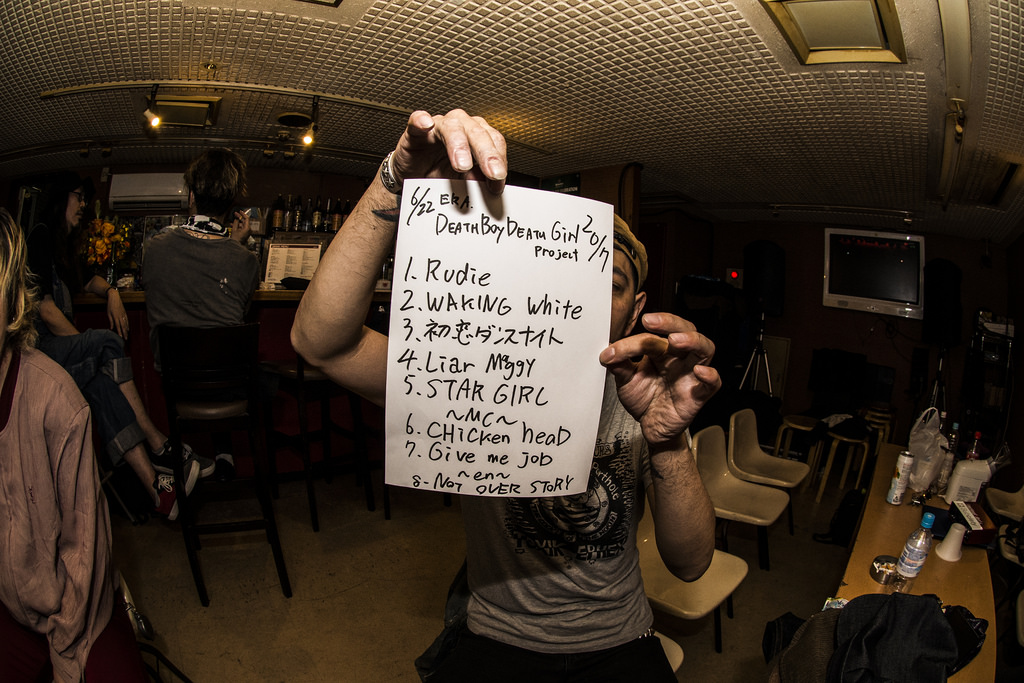 6/22 ERA.
DEATH BOY DEATH GIRL 2017
Project
1. Rudie
2. WAKING White
3. 初恋ダンスナイト
4. Liar Maggy
5. STAR GIRL
~MC~
6. CHICKEN heaD
7. Give me job
~en~
8. NOT OVER STORY